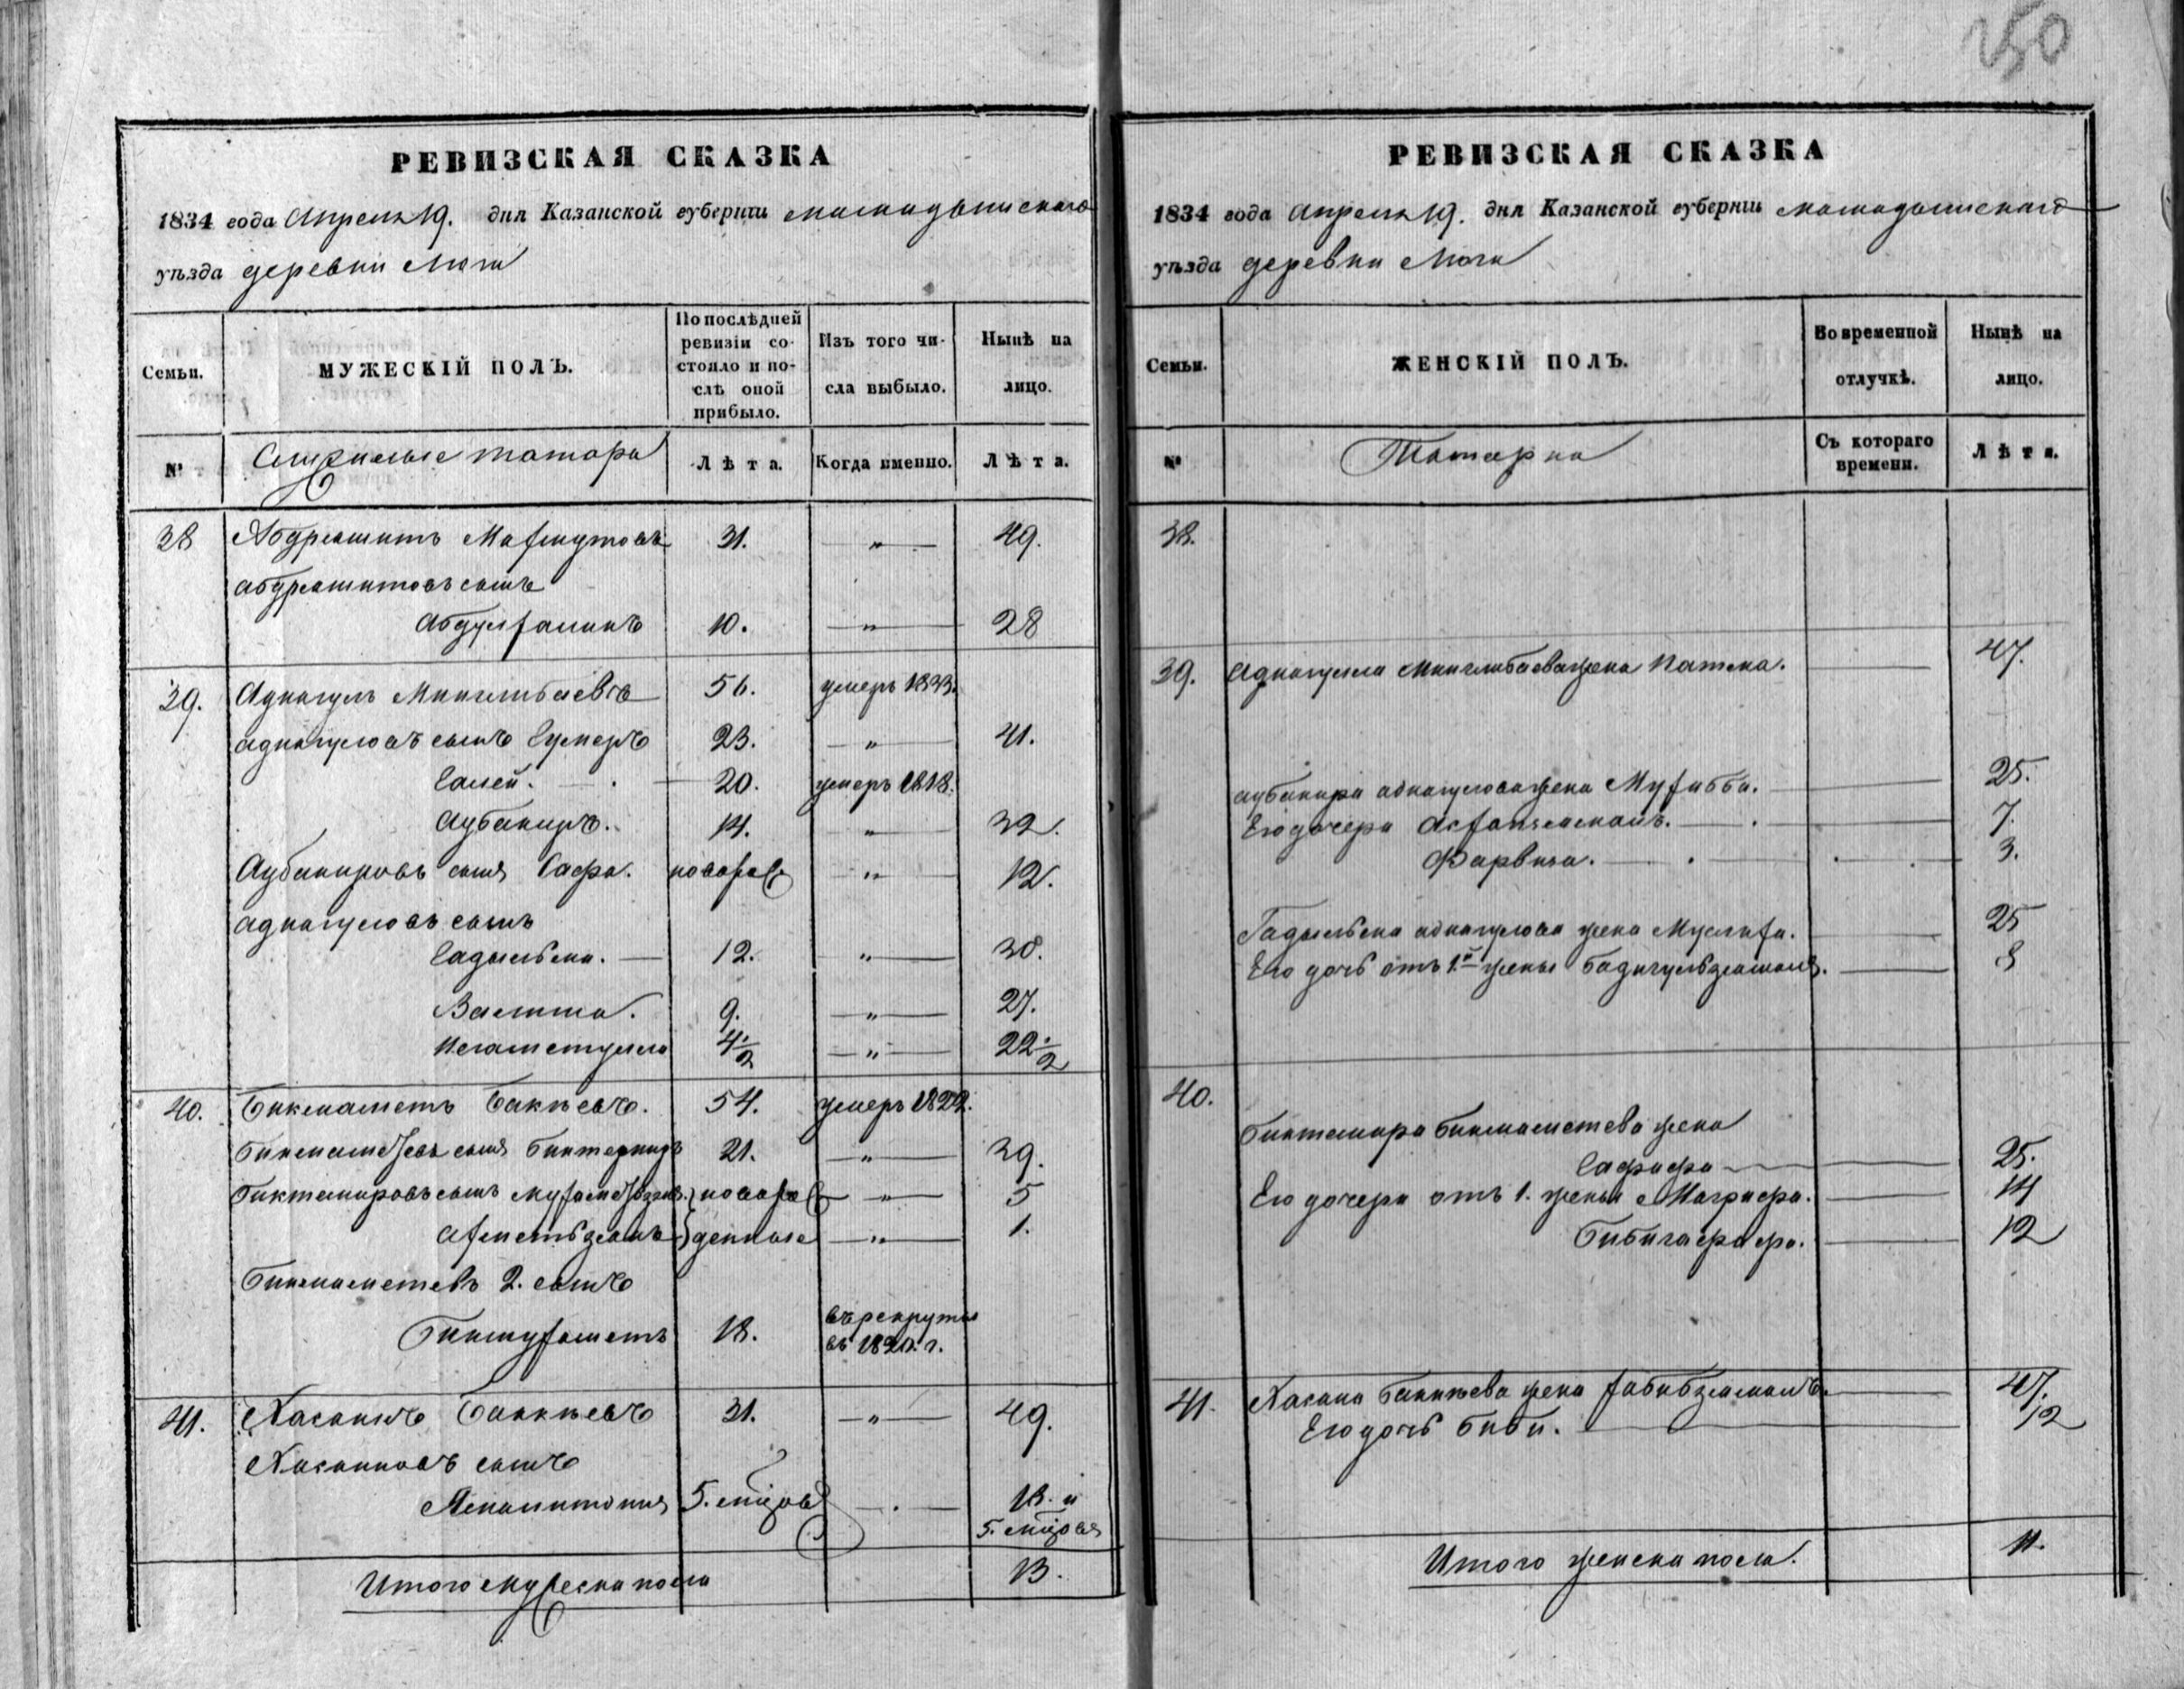 250
РЕВИЗСКАЯ СКАЗКА
1834 года Апреля 19. дня Казанской губерніи Мамадышскаго
уѣзда деревни Люги
Семьи.
МУЖЕСКІЙ ПОЛЪ.
По послѣдней ревизіи со-
стояло и по-
слѣ оной прибыло.
Изъ того чи-
сла выбыло.
Нынѣ на
лицо.
№
Служилые татары
Лѣта.
Когда именно.
Лѣта.
38 Абдрешитъ Махмутовъ 31. — " — 49.
абдрешитовъ сынъ
Абдулханикъ 10. — " — 28
39. Аднагулъ Минглибаевъ 56. умеръ 1833.
аднагуловъ сынъ Гумеръ 23. — " — 41.
Галей. 20. умеръ 1818.
Аубакиръ. 14. — " — 32.
Аубакировъ сынъ Сафа. новорож — " — 12.
аднагуловъ сынъ
Гадильша. 12. — " — 30.
Валитъ. 9. — " — 27.
Негаметулла 4 1/2 — " — 22 1/2
40. Бикмаметъ Бакѣевъ. 54. умеръ 1822.
Бикмаметевъ сынъ Биктемиръ 21. — " — 39.
Биктемировъ сынъ новорож — " — 5
Ахметьзянъ денные — " — 1.
Бикмаметевъ 2. сынъ
Бикмухаметъ 18. въ рекруты
въ г.
41. Хасанъ Баккѣевъ 31. — " — 49.
Хасановъ сынъ
5. мѣсяцовъ — . — 18. и
5. мѣсяцовъ
Итого мужеска пола 13.
РЕВИЗСКАЯ СКАЗКА
1834 года Апреля 19. дня Казанской губерніи Мамадышскаго
уѣзда деревни Люги
Семьи.
ЖЕНСКІЙ ПОЛЪ.
Во временной
отлучкѣ.
Нынѣ на
лицо.
№
Татарки
Съ котораго
времени.
Лѣта.
38.
39. Аднагула Минглибаева жена 47.
аубакира аднагулова жена Мухибба. 25.
Его дочери 7.
Фарвиза. 3.
Гадильша аднагулова жена Муслиха. 25
Его дочь отъ 1й жены Бадигульзямаль. 8
40.
Биктемира Бикмаметева жена
Гафифа 25.
Его дочери отъ 1. жены Магрифа. 14
Бибигафифа. 12
41. Хасана Баккѣева жена Хабибзямалъ. 47.
Его дочь Биби. 12
Итого женска пола. 11.